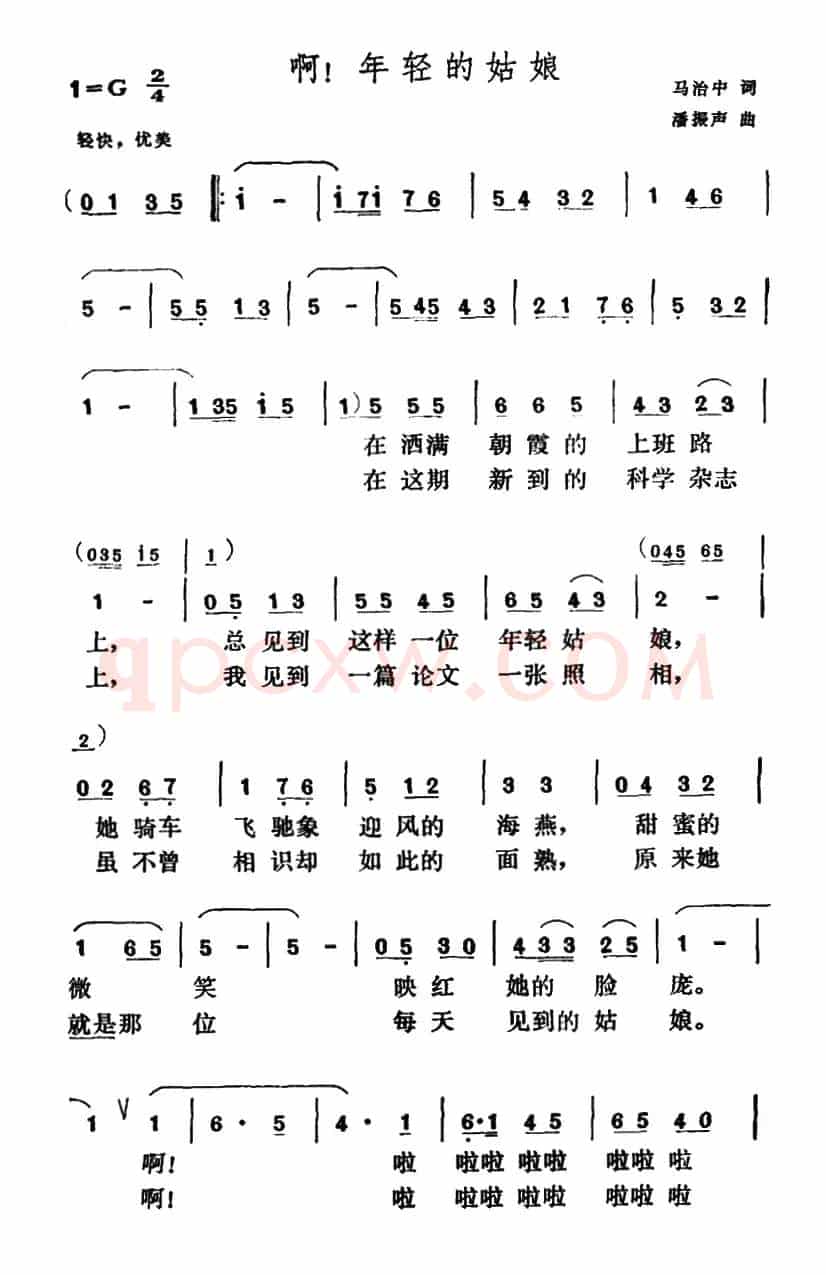 啊！年轻的姑娘
1=G 2/4
马治中 词
潘振声 曲
轻快，优美
(0 1 3 5 |: i - | i 7 i 7 6 | 5 4 3 2 | 1 4 6 |
5 - | 5 5 1 3 | 5 - | 5 4 5 4 3 | 2 1 7 6 | 5 3 2 |
1 - | 1 3 5 i 5 | 1) 5 5 5 | 6 6 5 | 4 3 2 3 |
在 洒满 朝 霞 的 上班 路
在 这期 新 到 的 科学 杂志
(0 3 5 i 5 | 1) (0 4 5 6 5 |
1 - | 0 5 1 3 | 5 5 4 5 | 6 5 4 3 | 2 - |
上， 总 见到 这样 一位 年轻 姑 娘，
上， 我 见到 一篇 论文 一张 照 相，
qpcxw.com
2)
0 2 6 7 | 1 7 6 | 5 1 2 | 3 3 | 0 4 3 2 |
她 骑车 飞 驰象 迎 风的 海 燕， 甜 蜜的
虽 不曾 相 识却 如 此的 面 熟， 原 来她
1 6 5 | 5 - | 5 - | 0 5 3 0 | 4 3 3 2 5 | 1 - |
微 笑 映 红 她的 脸 庞。
就是那 位 每 天 见到的 姑 娘。
1 V 1 | 6 · 5 | 4 · 1 | 6 · 1 4 5 | 6 5 4 0 |
啊！ 啦 啦啦 啦啦 啦啦 啦
啊！ 啦 啦啦 啦啦 啦啦 啦